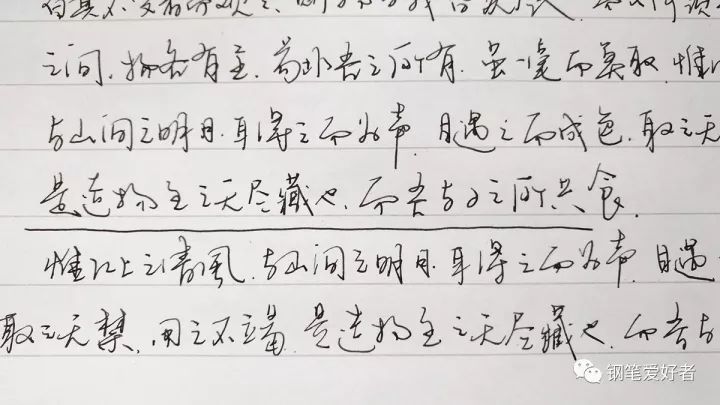 之间，物各有主，苟非吾之所有，虽一毫而莫取，惟
与山间之明月，耳得之而为声，目遇之而成色，取之无
是造物主之无尽藏也，而吾与子之所共食。
惟江上之清风，与山间之明月，耳得之而为声，目遇
取之无禁，用之不竭，是造物主之无尽藏也，而吾与
钢笔爱好者